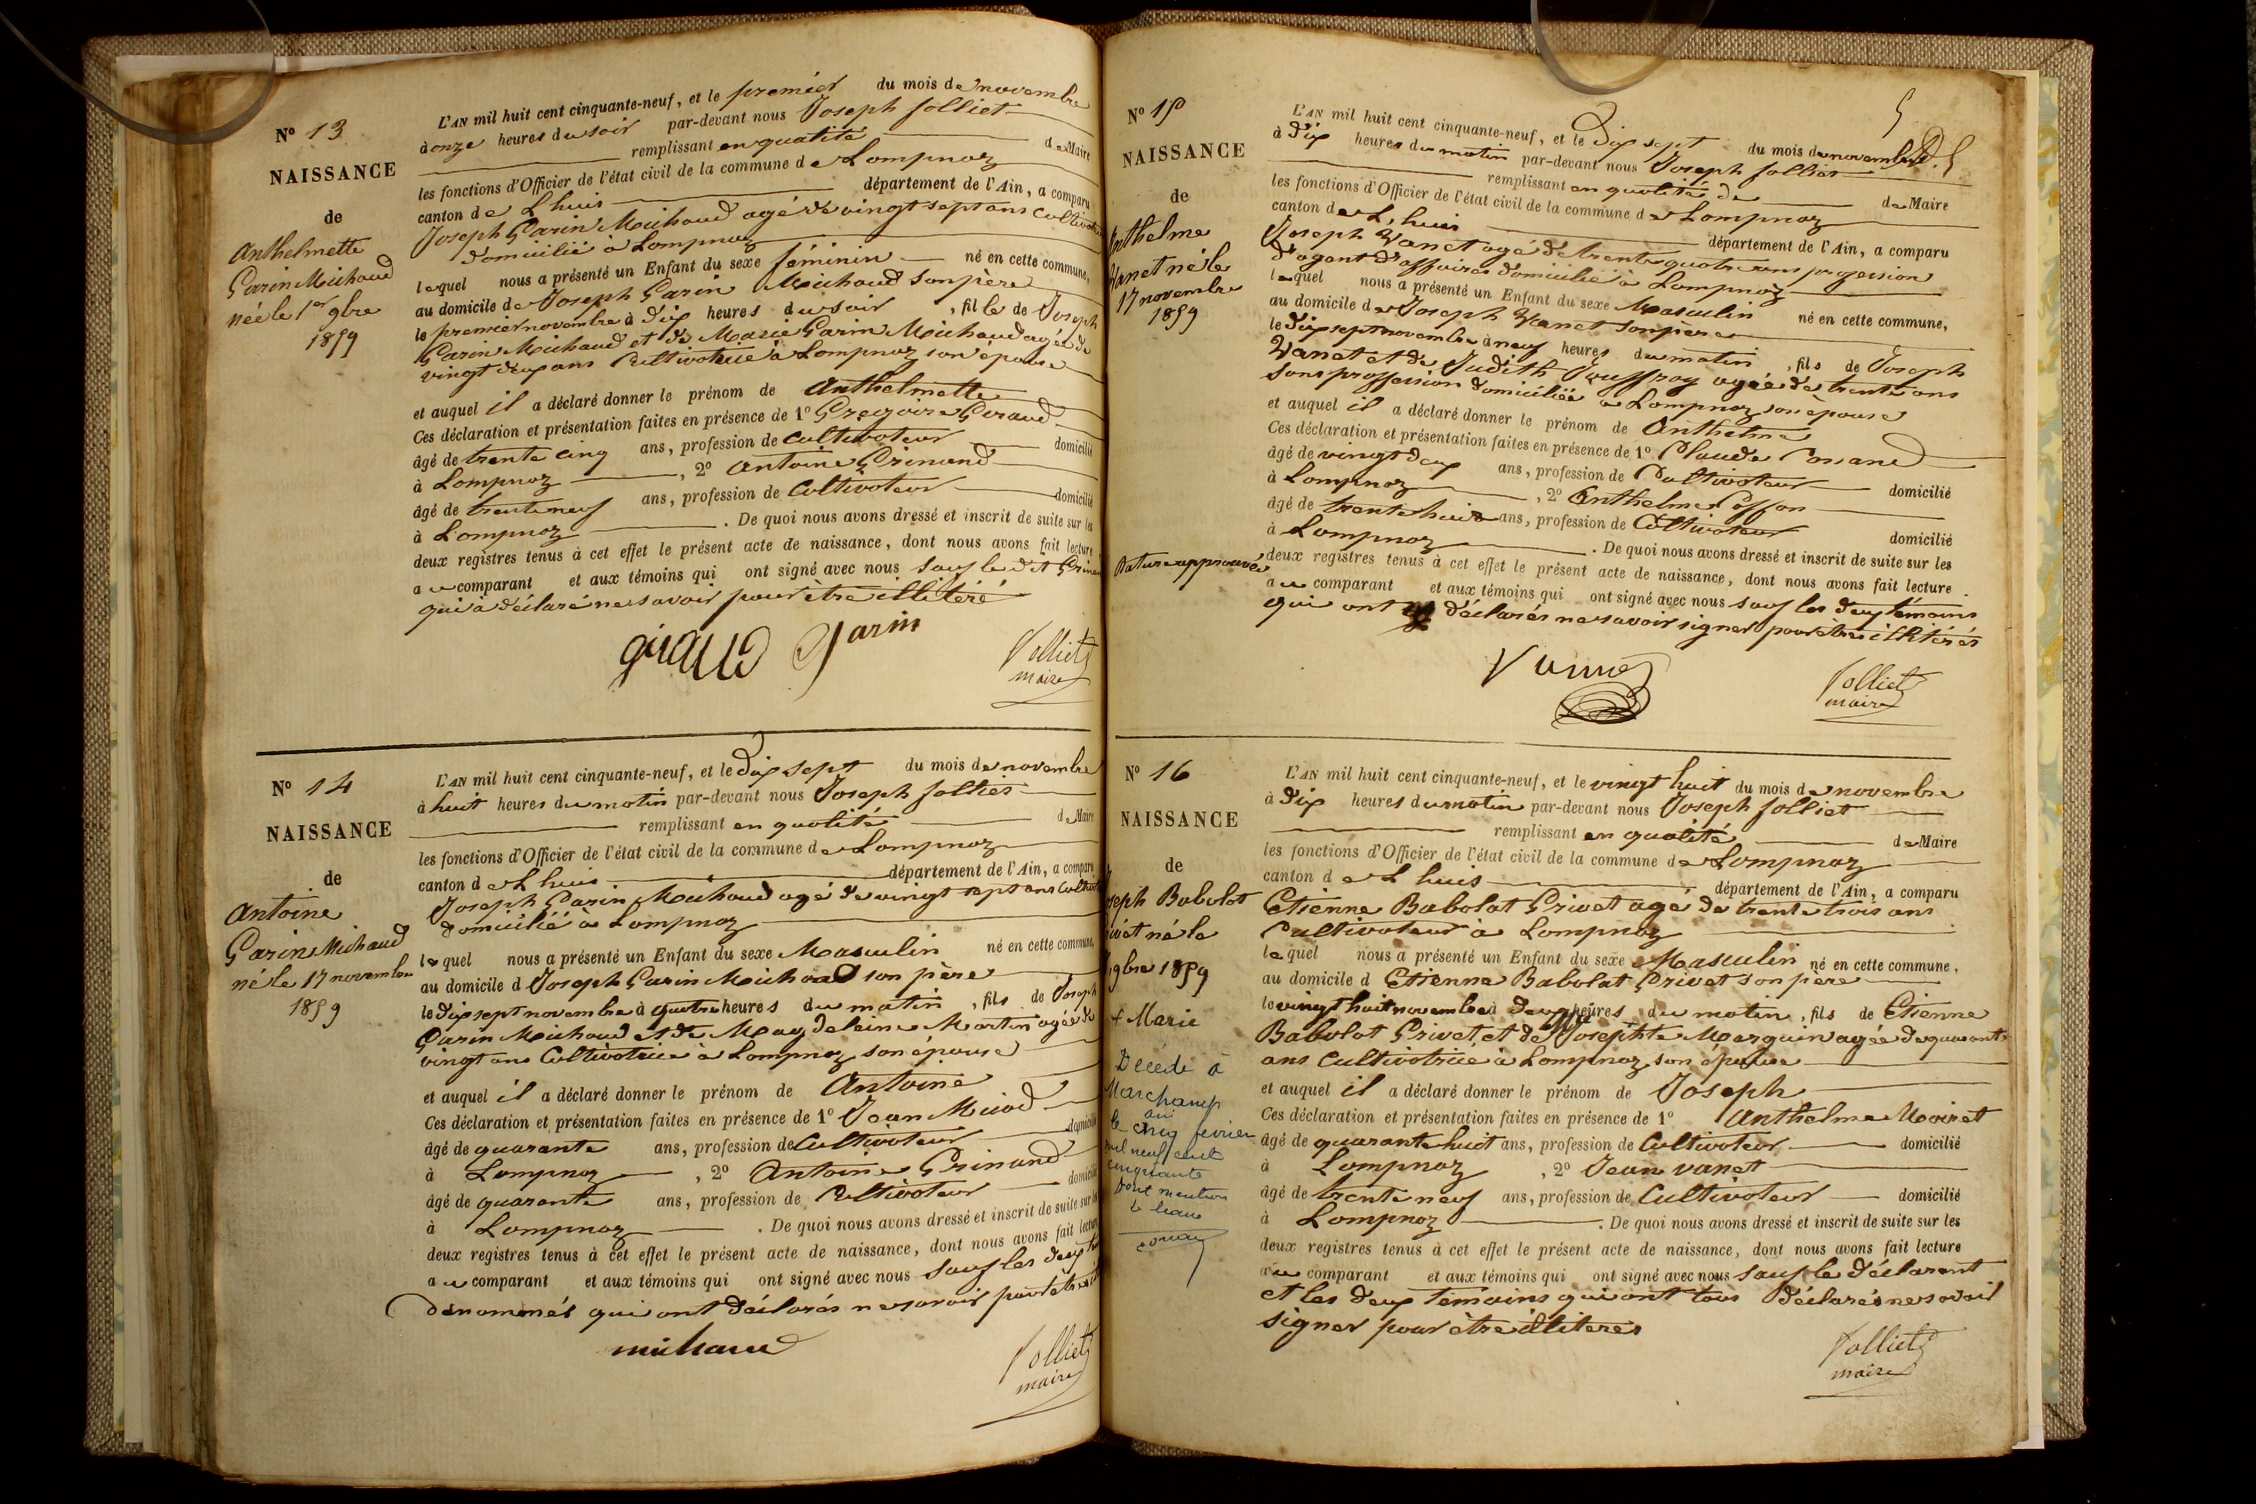 N° 13
NAISSANCE
de
Anthelmette
Garin Michaud
née le 1er 9bre
1859
L'AN mil huit cent cinquante-neuf, et le premier du mois de novembre
à onze heures du soir par-devant nous Joseph Jolliet
remplissant en qualité de Maire
les fonctions d'Officier de l'état civil de la commune de Lompnaz
canton de Lhuis département de l'Ain, a comparu
Joseph Garin Michaud agé de vingt sept ans Cultivateur
domicilié à Lompnaz
lequel nous a présenté un Enfant du sexe féminin né en cette commune,
au domicile de Joseph Garin Michaud son père
le premier novembre à dix heures du soir, fille de Joseph
Garin Michaud et de Marie Garin Michaud agée de
vingt deux ans Cultivatrice à Lompnaz son épouse
et auquel il a déclaré donner le prénom de Anthelmette
Ces déclaration et présentation faites en présence de 1° Gregoire Giraud
âgé de trente cinq ans, profession de Cultivateur domicilié
à Lompnaz, 2° Antoine Grinand
âgé de trente neuf ans, profession de Cultivateur domicilié
à Lompnaz. De quoi nous avons dressé et inscrit de suite sur les
deux registres tenus à cet effet le présent acte de naissance, dont nous avons fait lecture
au comparant et aux témoins qui ont signé avec nous sauf le dit Grinand
qui a déclaré ne savoir pour être illitéré
giraud Garin Jolliet
maire
N° 14
NAISSANCE
de
Antoine
Garin Michaud
né le 17 novembre
1859
L'AN mil huit cent cinquante-neuf, et le dix sept du mois de novembre
à huit heures du matin par-devant nous Joseph Jolliet
remplissant en qualité de Maire
les fonctions d'Officier de l'état civil de la commune de Lompnaz
canton de Lhuis département de l'Ain, a comparu
Joseph Garin Michaud agé de vingt sept ans Cultivateur
domicilié à Lompnaz
lequel nous a présenté un Enfant du sexe Masculin né en cette commune,
au domicile d Joseph Garin Michaud son père
le dix sept novembre à quatre heures du matin, fils de Joseph
Garin Michaud et de Magdeleine Martin agée de
vingt ans Cultivatrice à Lompnaz son épouse
et auquel il a déclaré donner le prénom de Antoine
Ces déclaration et présentation faites en présence de 1° Jean
âgé de quarante ans, profession de Cultivateur domicilié
à Lompnaz, 2° Antoine Grinand
âgé de quarante ans, profession de Cultivateur domicilié
à Lompnaz. De quoi nous avons dressé et inscrit de suite sur les
deux registres tenus à cet effet le présent acte de naissance, dont nous avons fait lecture
au comparant et aux témoins qui ont signé avec nous sauf les deux
dénommés qui ont déclarés ne savoir pour être
michaud Jolliet
maire
N° 15
NAISSANCE
de
Anthelme
Vanet né le
17 novembre
1859
Rature approuvée
L'AN mil huit cent cinquante-neuf, et le Dix sept du mois de novembre
à dix heures du matin par-devant nous Joseph Jolliet
remplissant en qualité de de Maire
les fonctions d'Officier de l'état civil de la commune de Lompnaz
canton de Lhuis département de l'Ain, a comparu
Joseph Vanet agé de trente quatre ans profession
d'agent d'affaires domicilié à Lompnaz
lequel nous a présenté un Enfant du sexe Masculin né en cette commune,
au domicile de Joseph Vanet son père
le dix sept novembre à neuf heures du matin, fils de Joseph
Vanet et de Judith Jouffroy agée de trente ans
sans proffession domiciliée à Lompnaz son épouse
et auquel il a déclaré donner le prénom de Anthelme
Ces déclaration et présentation faites en présence de 1° Claude
âgé de vingt deux ans, profession de Cultivateur domicilié
à Lompnaz, 2° Anthelme Goffon
âgé de trente huit ans, profession de Cultivateur domicilié
à Lompnaz. De quoi nous avons dressé et inscrit de suite sur les
deux registres tenus à cet effet le présent acte de naissance, dont nous avons fait lecture
au comparant et aux témoins qui ont signé avec nous sauf les deux témoins
qui ont déclarés ne savoir signer pour être illitérés
Vanet Jolliet
maire
N° 16
NAISSANCE
de
Joseph Babolat
Grivet né le
9bre 1859
+ Marie
Décédé à
Marchamp
Ain
le cinq fevrier
mil neuf cent
cinquante
Dont mention
le maire
L'AN mil huit cent cinquante-neuf, et le vingt huit du mois de novembre
à dix heures du matin par-devant nous Joseph Jolliet
remplissant en qualité de Maire
les fonctions d'Officier de l'état civil de la commune de Lompnaz
canton de Lhuis département de l'Ain, a comparu
Etienne Babolat Grivet agé de trente trois ans
Cultivateur à Lompnaz
lequel nous a présenté un Enfant du sexe Masculin né en cette commune,
au domicile d Etienne Babolat Grivet son père
le vingt huit novembre à deux heures du matin, fils de Etienne
Babolat Grivet et de Josephte Marguin agée de quarante
ans Cultivatrice à Lompnaz son épouse
et auquel il a déclaré donner le prénom de Joseph
Ces déclaration et présentation faites en présence de 1° Anthelme Moiret
âgé de quarante huit ans, profession de Cultivateur domicilié
à Lompnaz, 2° Jean vanet
âgé de trente neuf ans, profession de Cultivateur domicilié
à Lompnaz. De quoi nous avons dressé et inscrit de suite sur les
deux registres tenus à cet effet le présent acte de naissance, dont nous avons fait lecture
au comparant et aux témoins qui ont signé avec nous sauf le déclarant
et les deux témoins qui ont tous déclarés ne savoir
signer pour être illiterés
Jolliet
maire